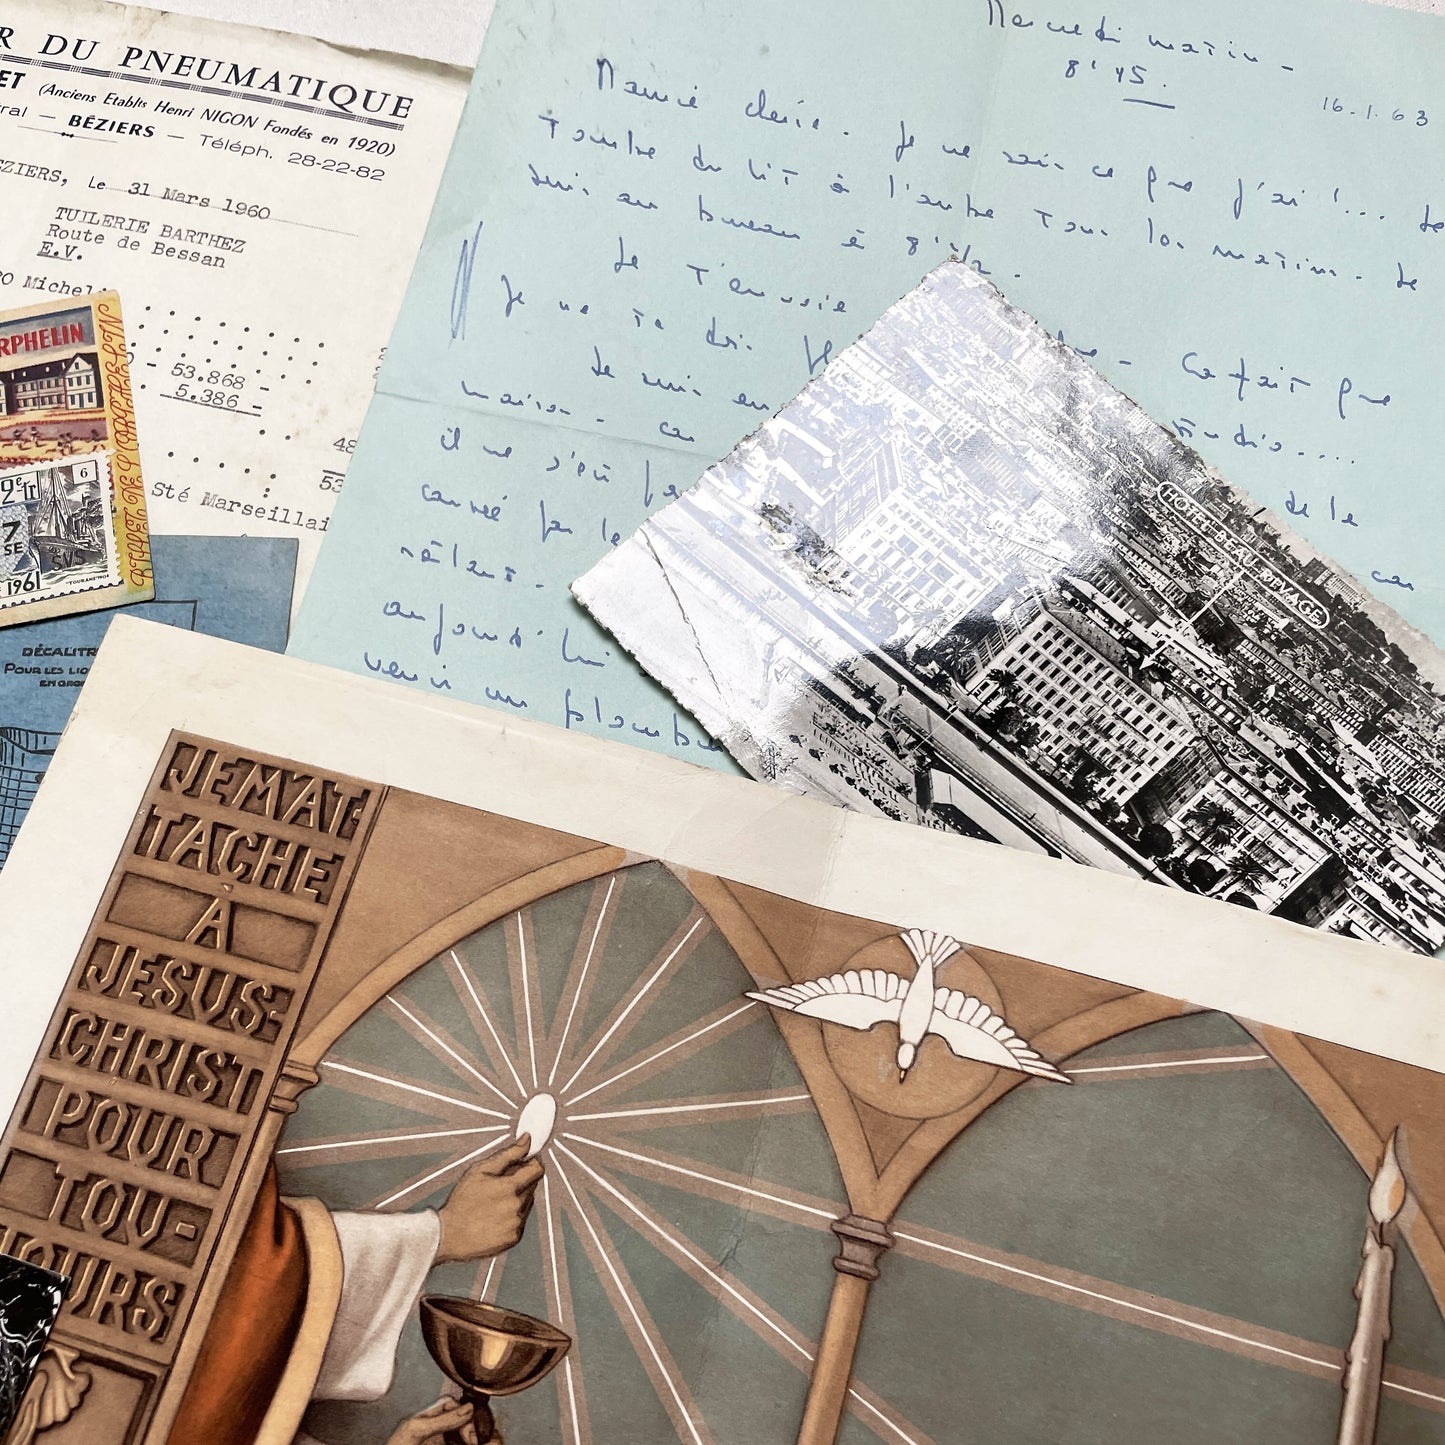 R DU PNEUMATIQUE
ET (Anciens Etablts Henri NIGON Fondés en 1920)
ral — BÉZIERS — Téléph. 28-22-82
ZIERS, Le 31 Mars 1960
TUILERIE BARTHEZ
Route de Bessan
E.V.
O Micheli
- 53.868 -
5.386 -
48
53
Sté Marseillai
RPHELIN
6
2e tr
7
SE
SVS
1961
DÉCALITR
POUR LES LIQ
EN GRO
Mercredi matin -
8'45.
16.1.63
Mamie chérie. Je ne sais ce que j'ai !... Je
tombe du lit à l'aube tous les matins. Je
suis au bureau à 8'1/2.
Je t'envoie
Je ne te dis
Ca fait que
Je suis en
studio....
maison - ca
de le
il ne s'est
ca
causé par le
aujourd'hui
venir un plombie
HOTEL BEAU-RIVAGE
JE M'AT-
TACHE
À
JESUS-
CHRIST
POUR
TOU-
JOURS